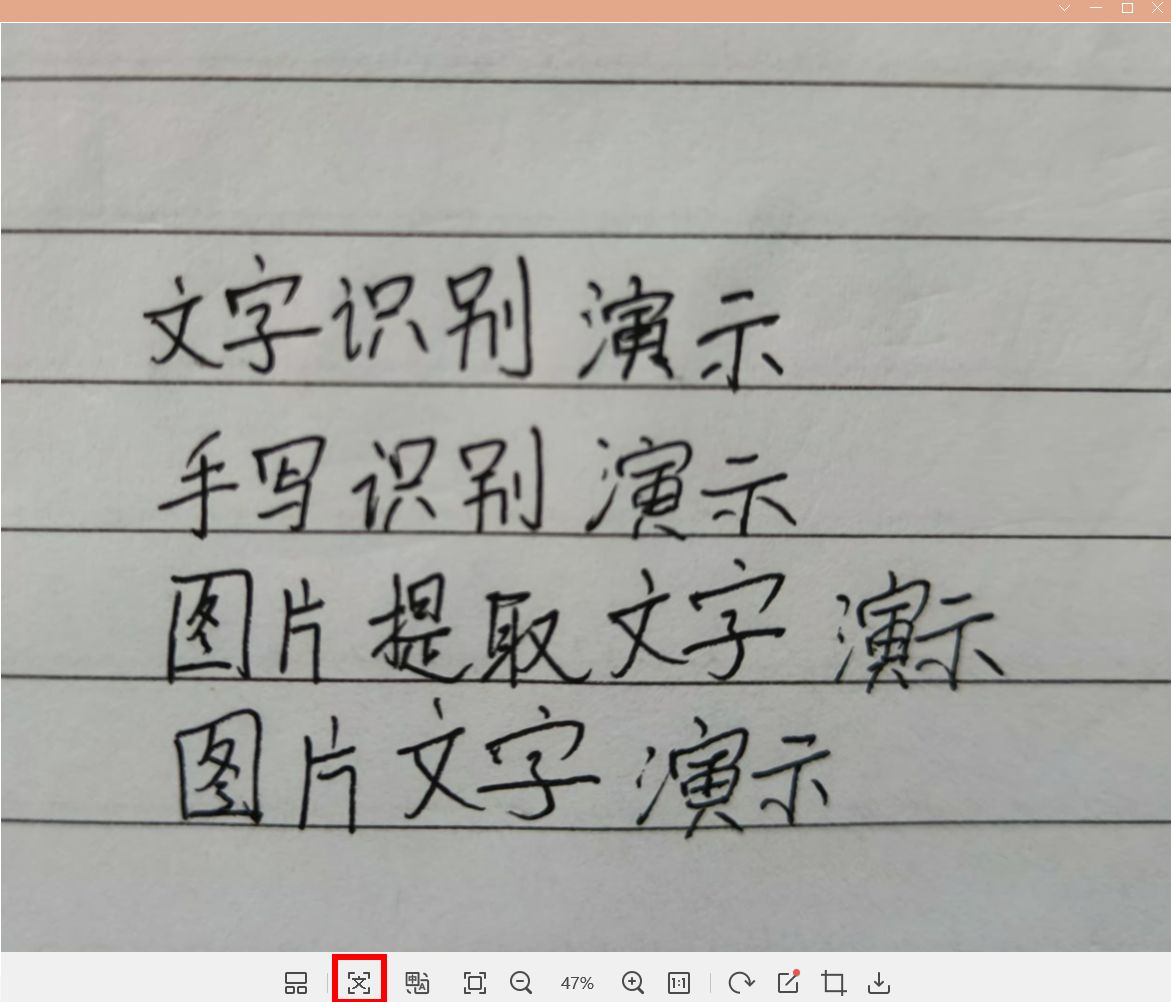 文字识别 演示
手写识别 演示
图片提取文字 演示
图片文字演示
47%
1:1